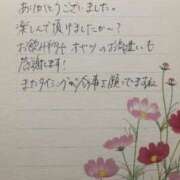 ありがとうございました。
楽しんで頂けましたか～?
お飲み物やオヤツのお気遣いも
感謝です!
またタイミング合う事を願ってますね